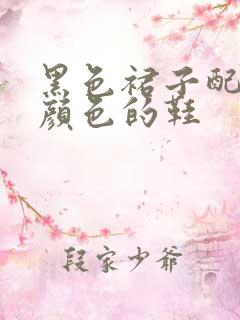 黑色裙子配
顏色的鞋
段家少爷